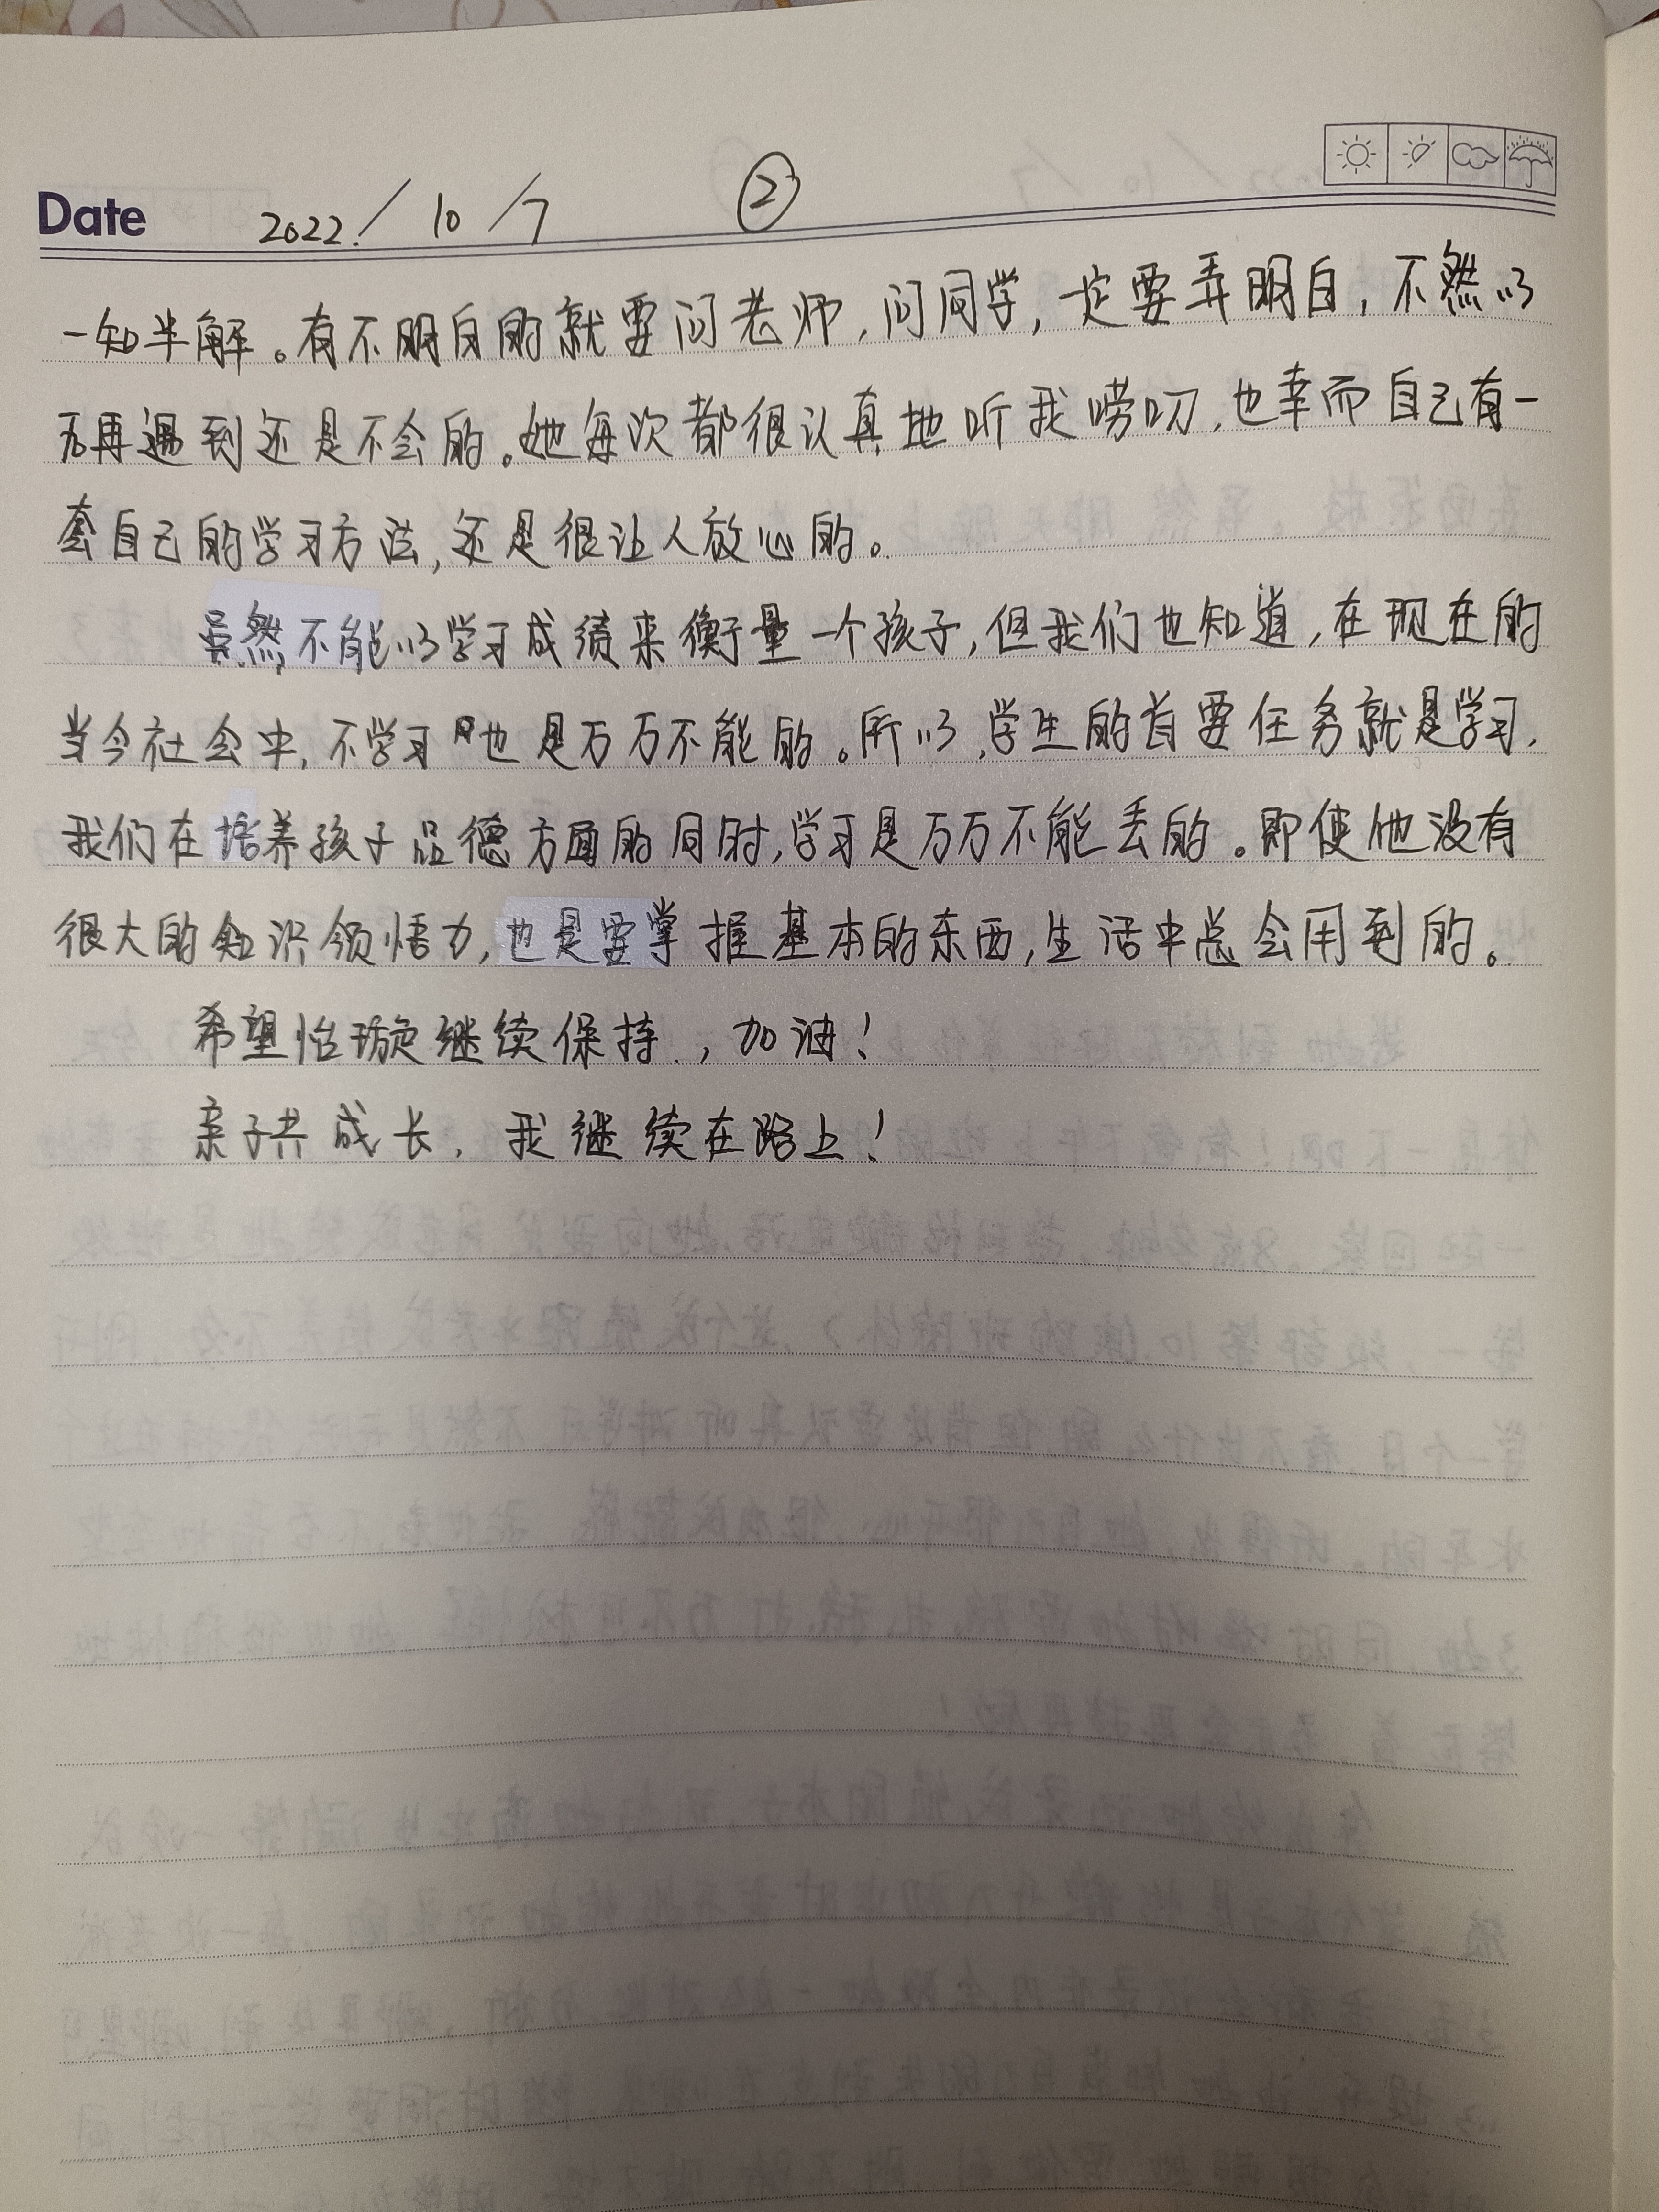 Date 2022/10/7 ②
一知半解。有不明白的就要问老师,问同学,一定要弄明白,不然以
后再遇到还是不会的。她每次都很认真地听我唠叨,也幸而自己有一
套自己的学习方法,还是很让人放心的。
虽然不能以学习成绩来衡量一个孩子,但我们也知道,在现在的
当今社会中,不学习也是万万不能的。所以,学生的首要任务就是学习,
我们在培养孩子品德方面的同时,学习是万万不能丢的。即使他没有
很大的知识领悟力,也是要掌握基本的东西,生活中总会用到的。
希望怡璇继续保持,加油!
亲子共成长,我继续在路上!